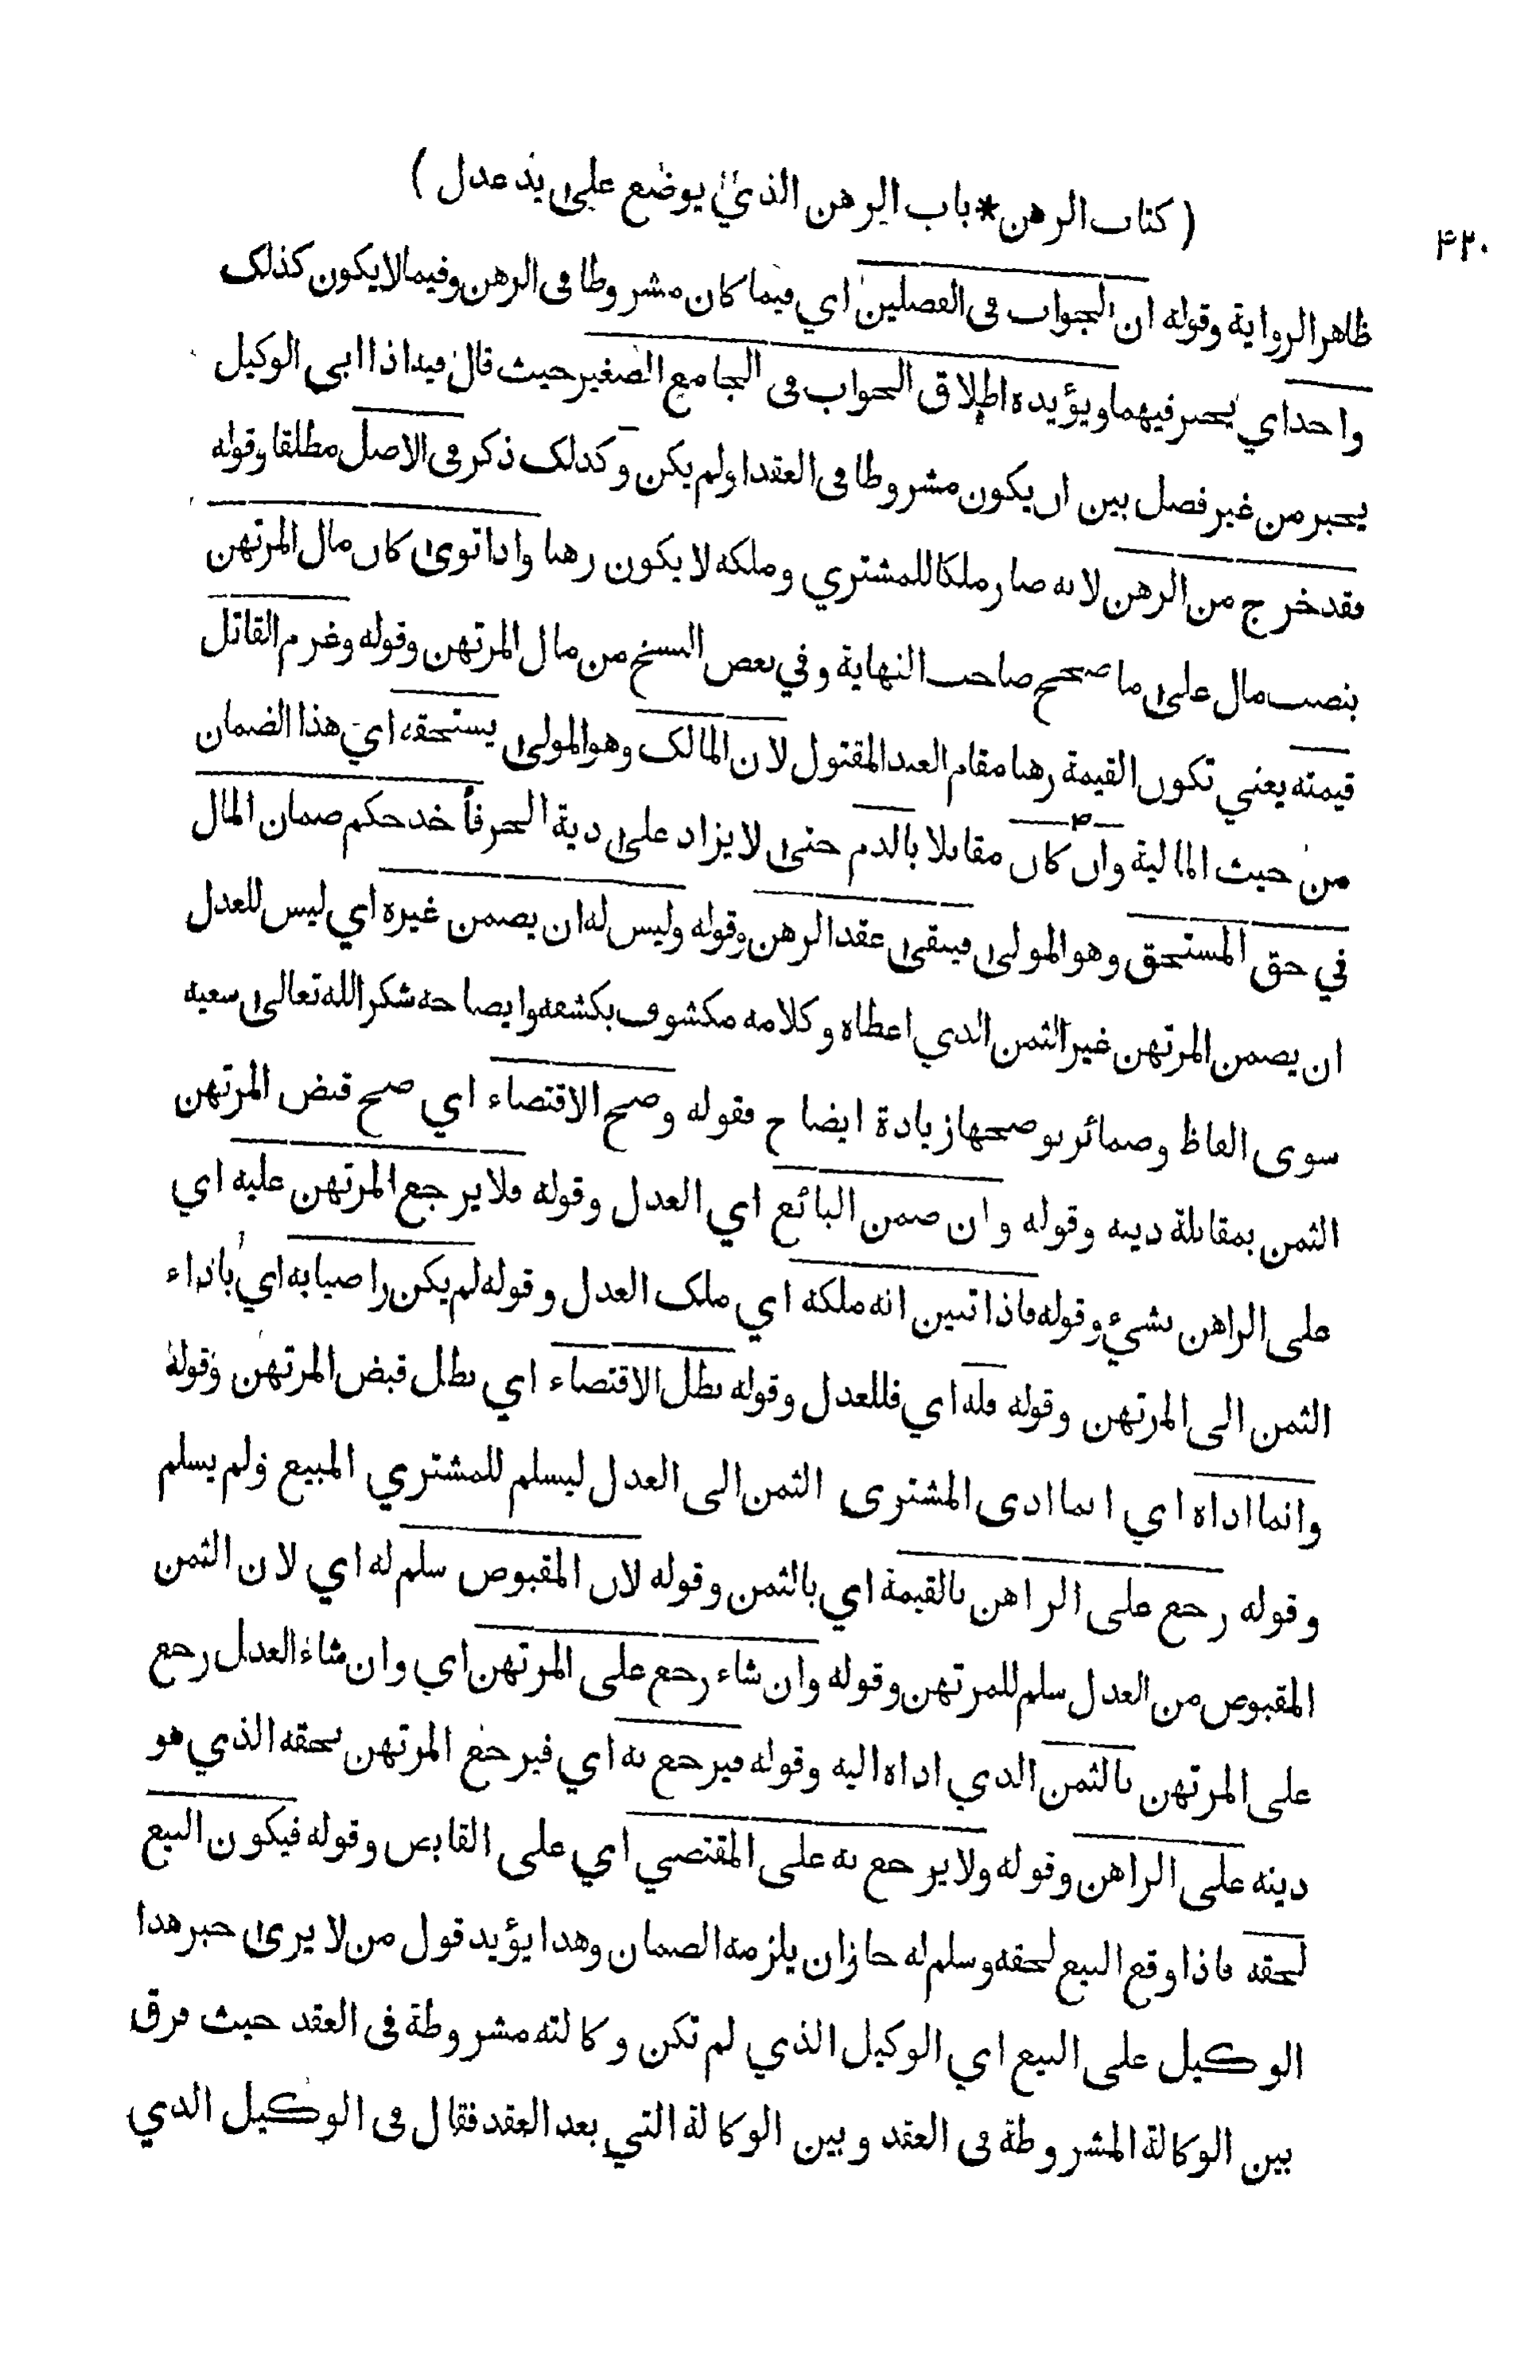 ٤٢٠
( كتاب الرهن * باب الرهن الذي يوضع على يد عدل )
ظاهر الرواية وقوله ان الجواب في الفصلين اي فيما كان مشروطا في الرهن وفيما لا يكون كذلك
واحد اي يجبر فيهما ويؤيده اطلاق الجواب في الجامع الصغير حيث قال فيه اذا ابى الوكيل
يجبر من غير فصل بين ان يكون مشروطا في العقد او لم يكن وكذلك ذكر في الاصل مطلقا وقوله
فقد خرج من الرهن لانه صار ملكا للمشتري وملكه لا يكون رهنا واذا توى كان مال المرتهن
بنصب مال على ما صححه صاحب النهاية وفي بعض النسخ من مال المرتهن وقوله وغرم القاتل
قيمته يعني تكون القيمة رهنا مقام العبد المقتول لان المالك وهو المولى يستحقه اي هذا الضمان
من حيث المالية وان كان مقابلا بالدم حتى لا يزاد على دية الحر فأخذ حكم ضمان المال
في حق المستحق وهو المولى فيبقى عقد الرهن وقوله وليس له ان يضمن غيره اي ليس للعدل
ان يضمن المرتهن غير الثمن الذي اعطاه وكلامه مكشوف بكشفه وايضاحه شكر الله تعالى سعيه
سوى الفاظ وضمائر نوضحها زيادة ايضاح فقوله وصح الاقتضاء اي صح قبض المرتهن
الثمن بمقابلة دينه وقوله وان ضمن البائع اي العدل وقوله فلا يرجع المرتهن عليه اي
على الراهن بشيء وقوله فاذا تبين انه ملكه اي ملك العدل وقوله لم يكن راضيا به اي باداء
الثمن الى المرتهن وقوله فله اي فللعدل وقوله بطل الاقتضاء اي بطل قبض المرتهن وقوله
وانما اداه اي انما ادى المشترى الثمن الى العدل ليسلم للمشتري المبيع ولم يسلم
وقوله رجع على الراهن بالقيمة اي بالثمن وقوله لان المقبوض سلم له اي لان الثمن
المقبوض من العدل سلم للمرتهن وقوله وان شاء رجع على المرتهن اي وان شاء العدل رجع
على المرتهن بالثمن الذي اداه اليه وقوله فيرجع به اي فيرجع المرتهن بحقه الذي هو
دينه على الراهن وقوله ولا يرجع به على المقتضي اي على القابض وقوله فيكون البيع
لحقه فاذا وقع البيع لحقه وسلم له جاز ان يلزمه الضمان وهذا يؤيد قول من لا يرى جبر هذا
الوكيل على البيع اي الوكيل الذي لم تكن وكالته مشروطة في العقد حيث فرق
بين الوكالة المشروطة في العقد وبين الوكالة التي بعد العقد فقال في الوكيل الذي